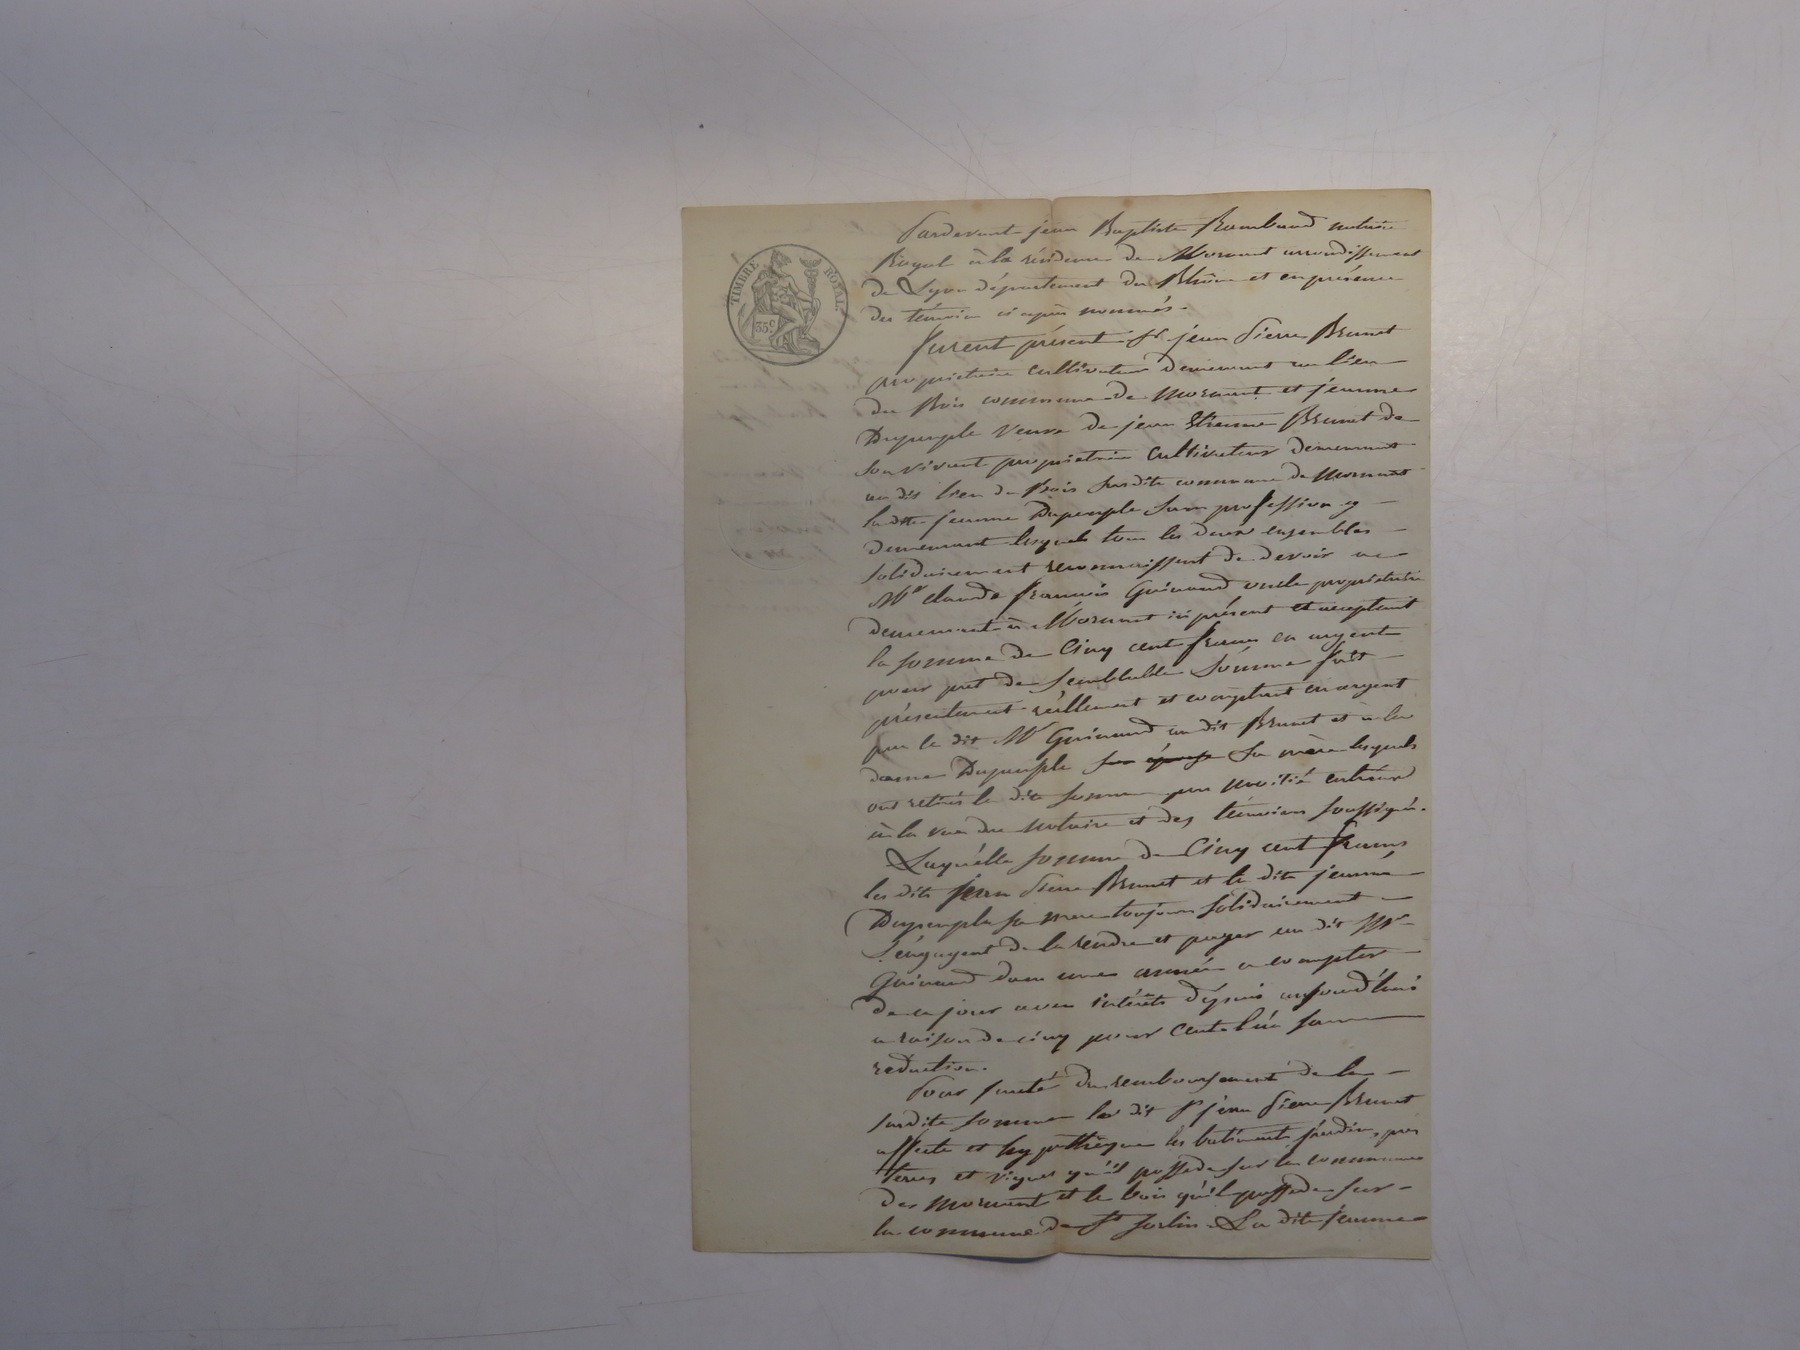 TIMBRE ROYAL
35 c.
Pardevant jean Baptiste Rambaud notaire
Royal à la résidence de Mornant arrondissement
de Lyon département du Rhône et en présence
des témoin ci après nommés.
Furent présent Sr. jean Pierre Brunet
propriétaire cultivateur demeurant au lieu
du Bois commune de Mornant et jeanne
Dupeuple veuve de jean Etienne Brunet de
son vivant propriétaire cultivateur demeurant
au dit lieu du Bois susdite commune de Mornant
ladite jeanne Dupeuple sans profession y
demeurant lesquels tous les deux ensembles
solidairement reconnaissent de devoir a
Mr claude francois Guinand propriétaire
demeurant à Mornant ici présent et acceptant
la somme de Cinq cent francs en argent
pour pret de semblable Somme fait
présentement réellement et comptant en argent
par le dit Mr Guinand au dit Brunet et à la
dame Dupeuple son épouse Sa mère lesquels
ont retirés la dite somme par moitié entr'eux
à la vue du notaire et des témoins soussignés.
Laquelle somme de Cinq cent francs
les dits jean Pierre Brunet et la dite jeanne
Dupeuple sa mere toujours solidairement
s'engagent de la rendre et payer au dit Mr
Guinand dans une année a compter
de ce jour avec intérêts dépuis aujourd'hui
a raison de cinq pour cent l'an sans
reduction.
Pour sureté du remboursement de la
susdite somme le dit Sr jean Pierre Brunet
affecte et hypothèque les batiments jardin, prés
terres et vignes qu'il possede sur la commune
de Mornant et le bois qu'il possede sur
la commune de St Sorlin. La dite jeanne